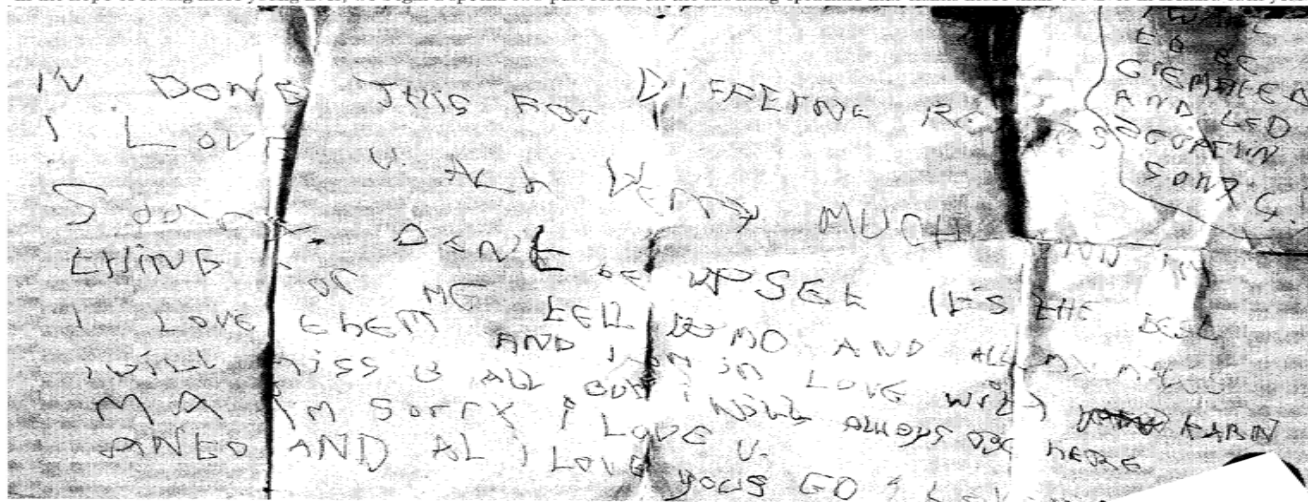 I'V DONE THIS FOR DIFFERINE
I LOVE U. ALL VERRY MUCH
DON'T BE UPSEt It'S tHE BESt
tHING FOR ME tELL MO AND ALL MY MAtES
I LOVE tHEM AND I'M IN LOVE WItH KARIN
I WILL MISS U ALL BUt I WILL ALWAYS BE HERE
MA I'M SORRY I LOVE U.
ANtO AND AL I LOVE YOUS
tO BE
CREMAtED
AND LED
ZEPELIN
SONX'S!